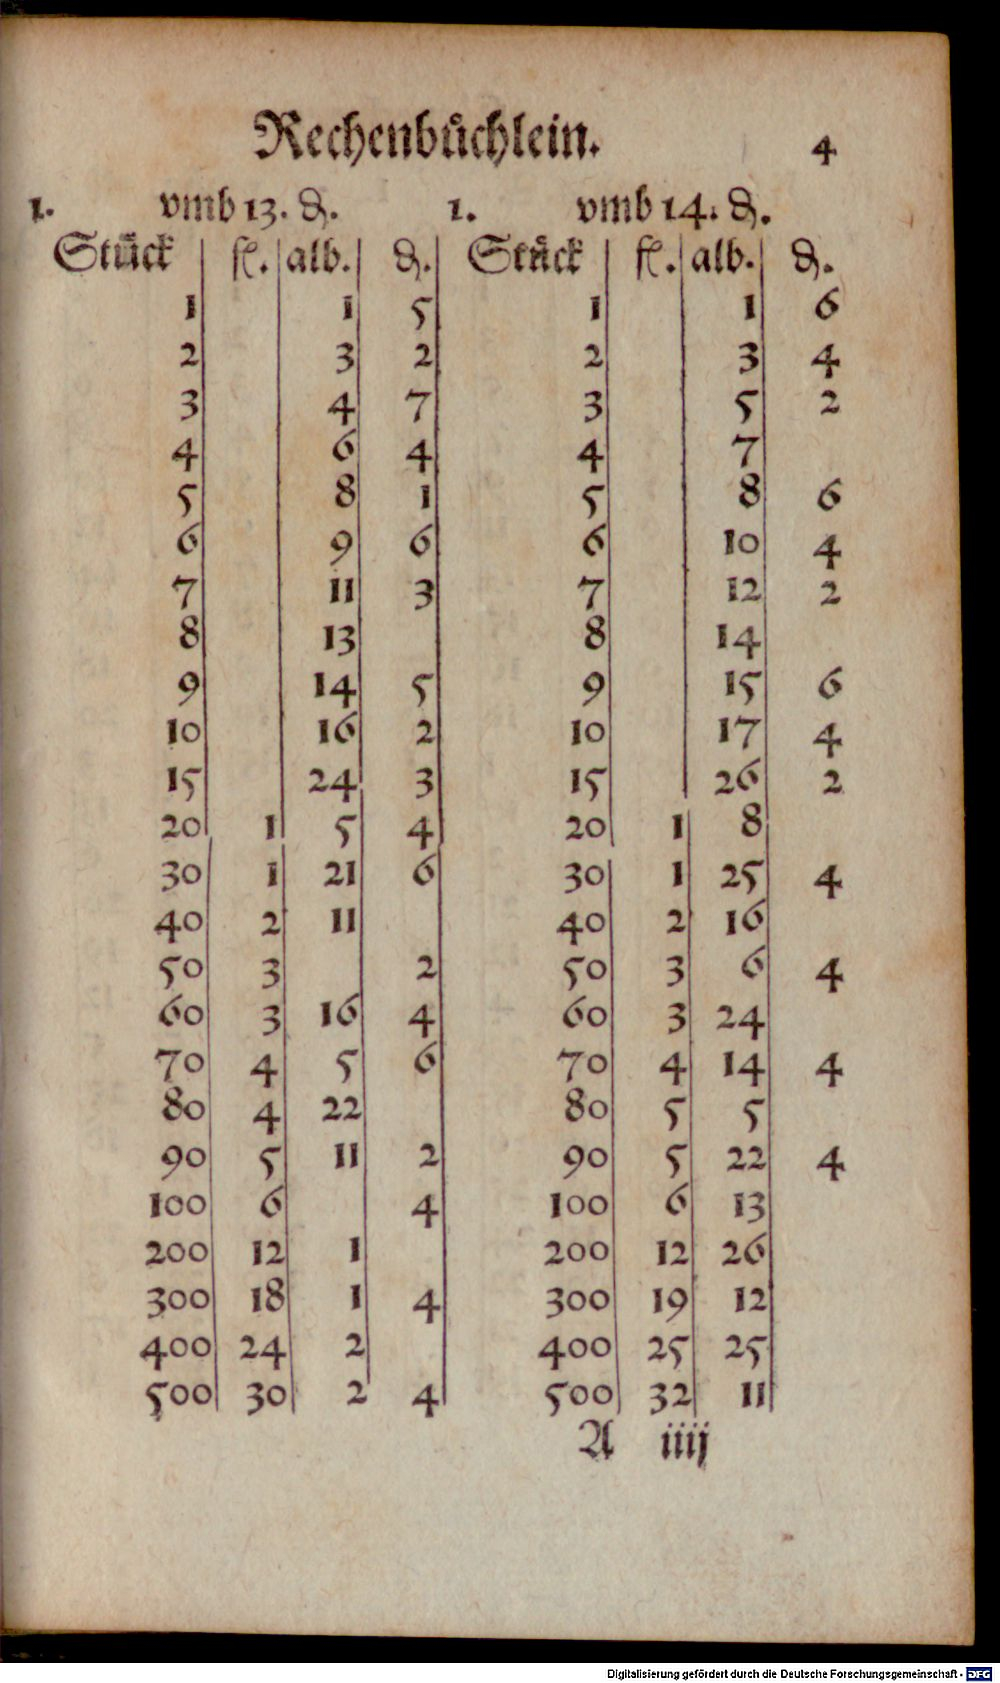 Rechenbůchlein. 4
1. vmb 13. ₰. 1. vmb 14. ₰.
Stůck fl. alb. ₰. Stůck fl. alb. ₰.
1 1 5 1 1 6
2 3 2 2 3 4
3 4 7 3 5 2
4 6 4 4 7
5 8 1 5 8 6
6 9 6 6 10 4
7 11 3 7 12 2
8 13 8 14
9 14 5 9 15 6
10 16 2 10 17 4
15 24 3 15 26 2
20 1 5 4 20 1 8
30 1 21 6 30 1 25 4
40 2 11 40 2 16
50 3 2 50 3 6 4
60 3 16 4 60 3 24
70 4 5 6 70 4 14 4
80 4 22 80 5 5
90 5 11 2 90 5 22 4
100 6 4 100 6 13
200 12 1 200 12 26
300 18 1 4 300 19 12
400 24 2 400 25 25
500 30 2 4 500 32 11
A iiij
Digitalisierung gefördert durch die Deutsche Forschungsgemeinschaft - DFG